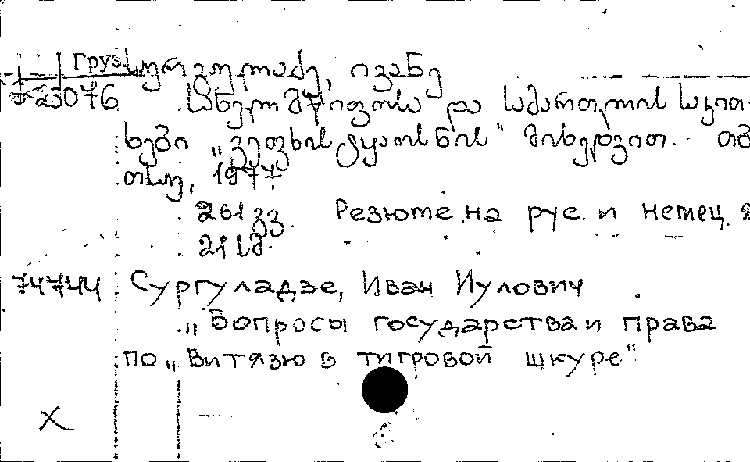 Груз სურგულაძე, ივანე
23076 სახელმწიფოსა და სამართლის საკით-
ხები „ვეფხისტყაოსნის" მიხედვით. თბ
1977
261 გვ. Резюме на рус. и немец. я
21 სმ.
74744 Сургуладзе, Иван Иулович
„Вопросы государства и права
по „Витязю в тигровой шкуре"
X